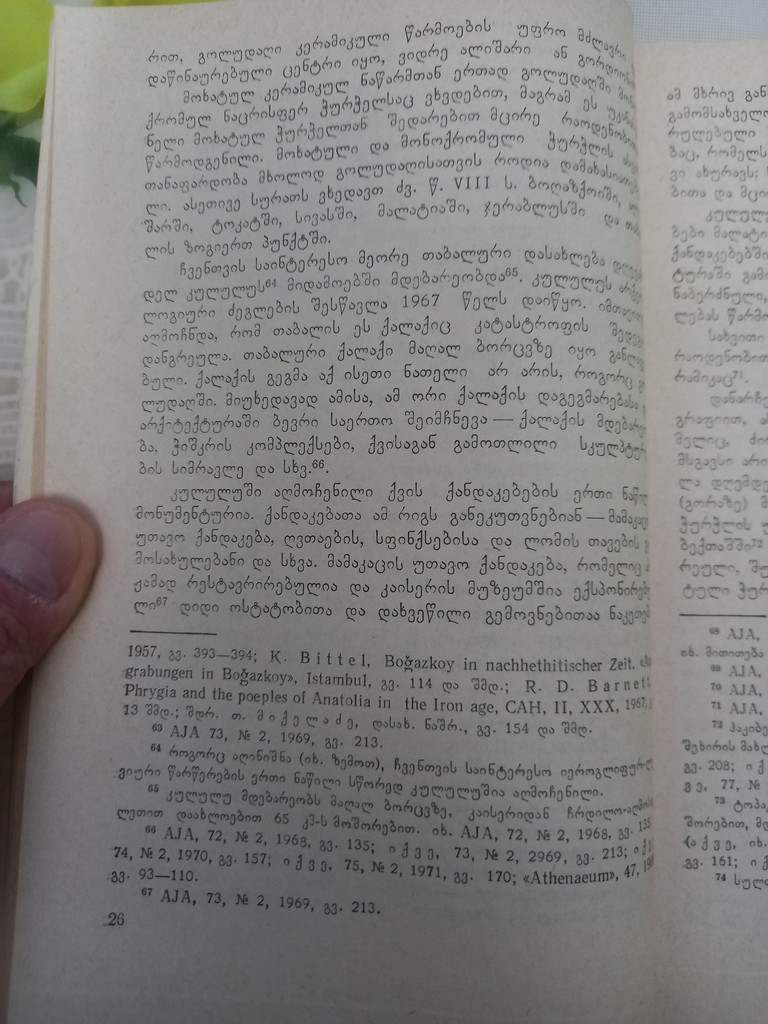 რით, გოლუდაღი კერამიკული წარმოების უფრო მძლავრი
დაწინაურებული ცენტრი იყო, ვიდრე ალიშარი ან
მოხატულ კერამიკულ ნაწარმთან ერთად გოლუდაღში
ქრომულ ნაცრისფერ ჭურჭელსაც ვხვდებით, მაგრამ ეს
ნელი მოხატულ ჭურჭელთან შედარებით მცირე
წარმოდგენილი. მოხატული და მონოქრომული ჭურჭლის
თანაფარდობა მხოლოდ გოლუდაღისათვის როდია
ლი. ასეთივე სურათს ვხედავთ ძვ. წ. VIII ს. ბოღაზქოიში,
შარში, ტოკატში, სივასში, მალატიაში, ჯერაბლუსში და
ლის ზოგიერთ პუნქტში.
ჩვენთვის საინტერესო მეორე თაბალური დასახლება
დელ კულულუს⁶⁴ მიდამოებში მდებარეობდა⁶⁵. კულულუს
ლოგიური ძეგლების შესწავლა 1967 წელს დაიწყო.
აღმოჩნდა, რომ თაბალის ეს ქალაქიც კატასტროფის
დანგრეულა. თაბალური ქალაქი მაღალ ბორცვზე იყო
ბული. ქალაქის გეგმა აქ ისეთი ნათელი არ არის, როგორც
ლუდაღში. მიუხედავად ამისა, ამ ორი ქალაქის დაგეგმარებასა
არქიტექტურაში ბევრი საერთო შეიმჩნევა — ქალაქის
ბა, ჭიშკრის კომპლექსები, ქვისაგან გამოთლილი
ბის სიმრავლე და სხვ.⁶⁶.
კულულუში აღმოჩენილი ქვის ქანდაკებების ერთი
მონუმენტურია. ქანდაკებათა ამ რიგს განეკუთვნებიან — მამაკაცის
უთავო ქანდაკება, ღვთაების, სფინქსებისა და ლომის თავების
მოსახულებანი და სხვა. მამაკაცის უთავო ქანდაკება, რომელიც
ჟამად რესტავრირებულია და კაისერის მუზეუმშია
ლი⁶⁷ დიდი ოსტატობითა და დახვეწილი გემოვნებითაა
1957, გვ. 393—394; K. Bittel, Boğazkoy in nachhethitischer Zeit,
grabungen in Boğazkoy», Istambul, გვ. 114 და შმდ.; R. D. Barnett
Phrygia and the poeples of Anatolia in the Iron age, CAH, II, XXX, 1967,
13 შმდ.; შდრ. თ. მიქელაძე, დასახ. ნაშრ., გვ. 154 და შმდ.
⁶³ AJA 73, № 2, 1969, გვ. 213.
⁶⁴ როგორც აღინიშნა (იხ. ზემოთ), ჩვენთვის საინტერესო
ვიური წარწერების ერთი ნაწილი სწორედ კულულუშია აღმოჩენილი.
⁶⁵ კულულუ მდებარეობს მაღალ ბორცვზე, კაისერიდან
ლეთით დაახლოებით 65 კმ-ს მოშორებით. იხ. AJA, 72, № 2, 1968, გვ. 135
⁶⁶ AJA, 72, № 2, 1968, გვ. 135; იქვე, 73, № 2, 2969, გვ. 213;
74, № 2, 1970, გვ. 157; იქვე, 75, № 2, 1971, გვ. 170; «Athenaeum», 47,
გვ. 93—110.
⁶⁷ AJA, 73, № 2, 1969, გვ. 213.
26
ამ მხრივ
რულებული
ბაც,
ვი ახურავს;
ბითა და
ბები
ქანდაკებებში
ტურაში
ნაბერძნული,
ლებას
სახვითი
რამიკაც⁷¹.
მსგავსი
(გორაზე)
ჭურჭლის
რეული,
⁶⁸ AJA,
იხ. მითითება
⁶⁹ AJA,
⁷⁰ AJA,
⁷¹ AJA,
შეხირის
გვ. 208;
გვ. 77, №
შორებით,
გვ. 161;